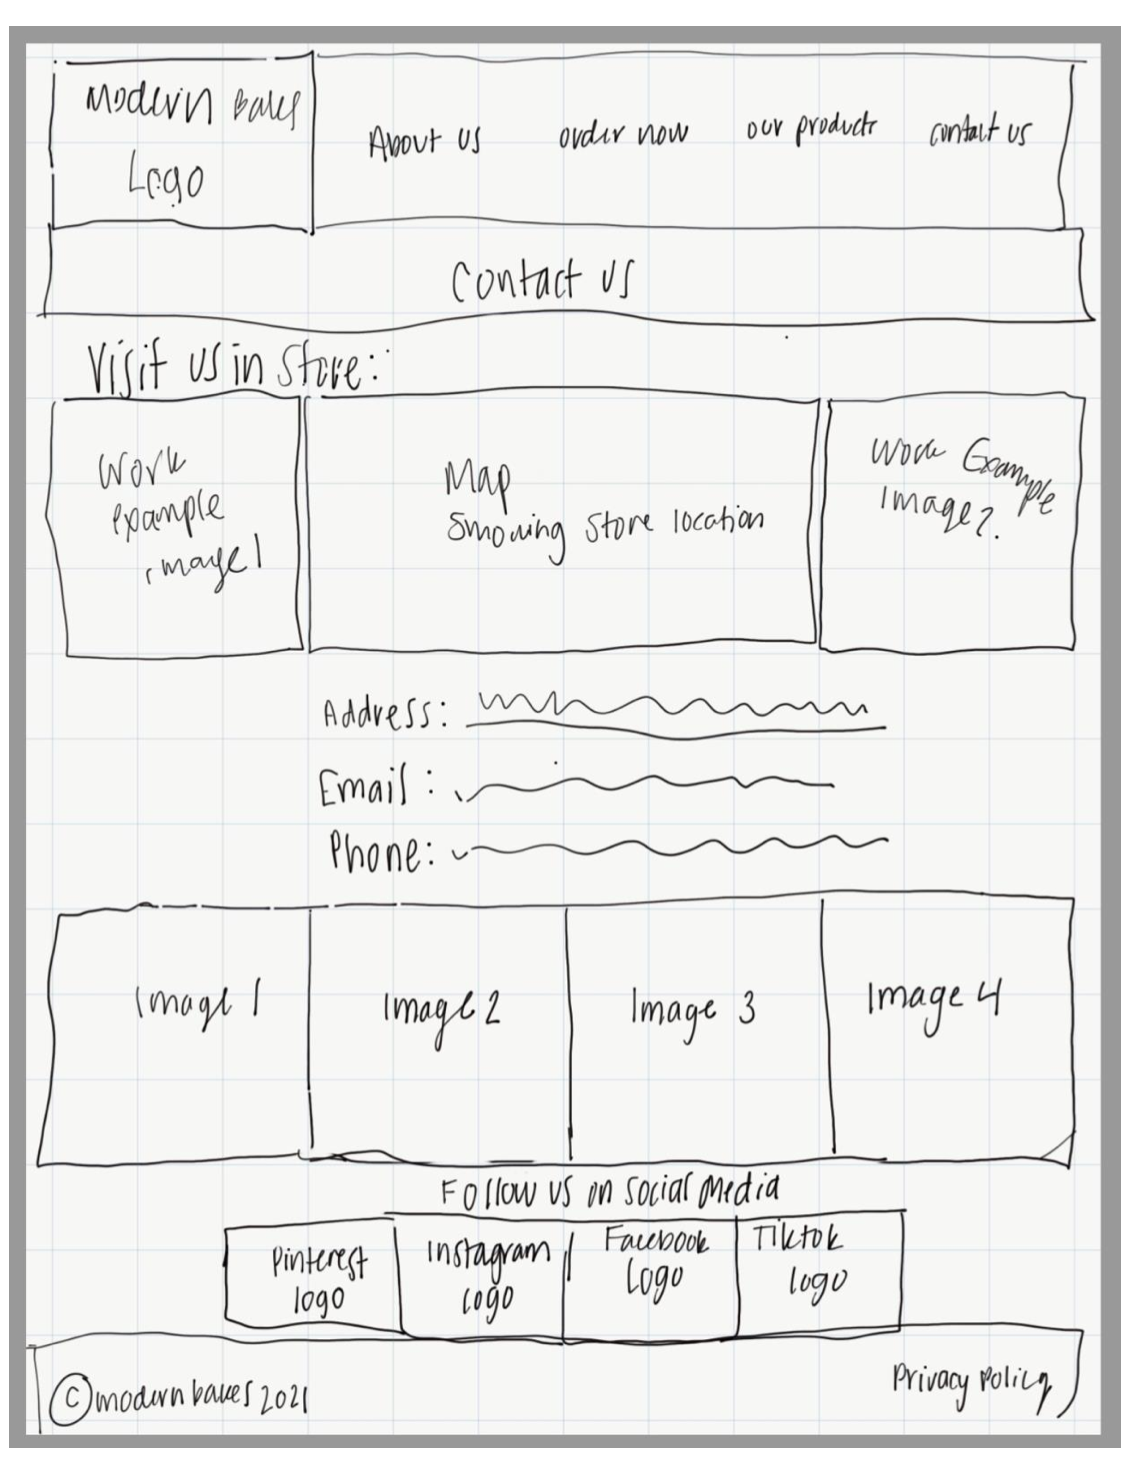 Modern Bakes
Logo
About us
order now
our products
contact us
Contact us
Visit us in store:
Work
example
image 1
Map
Showing store location
Work Example
Image 2.
Address:
Email :
Phone:
Image 1
Image 2
Image 3
Image 4
Follow us on social media
Pinterest
logo
Instagram
Logo
Facebook
Logo
Tiktok
logo
© modern bakes 2021
Privacy policy